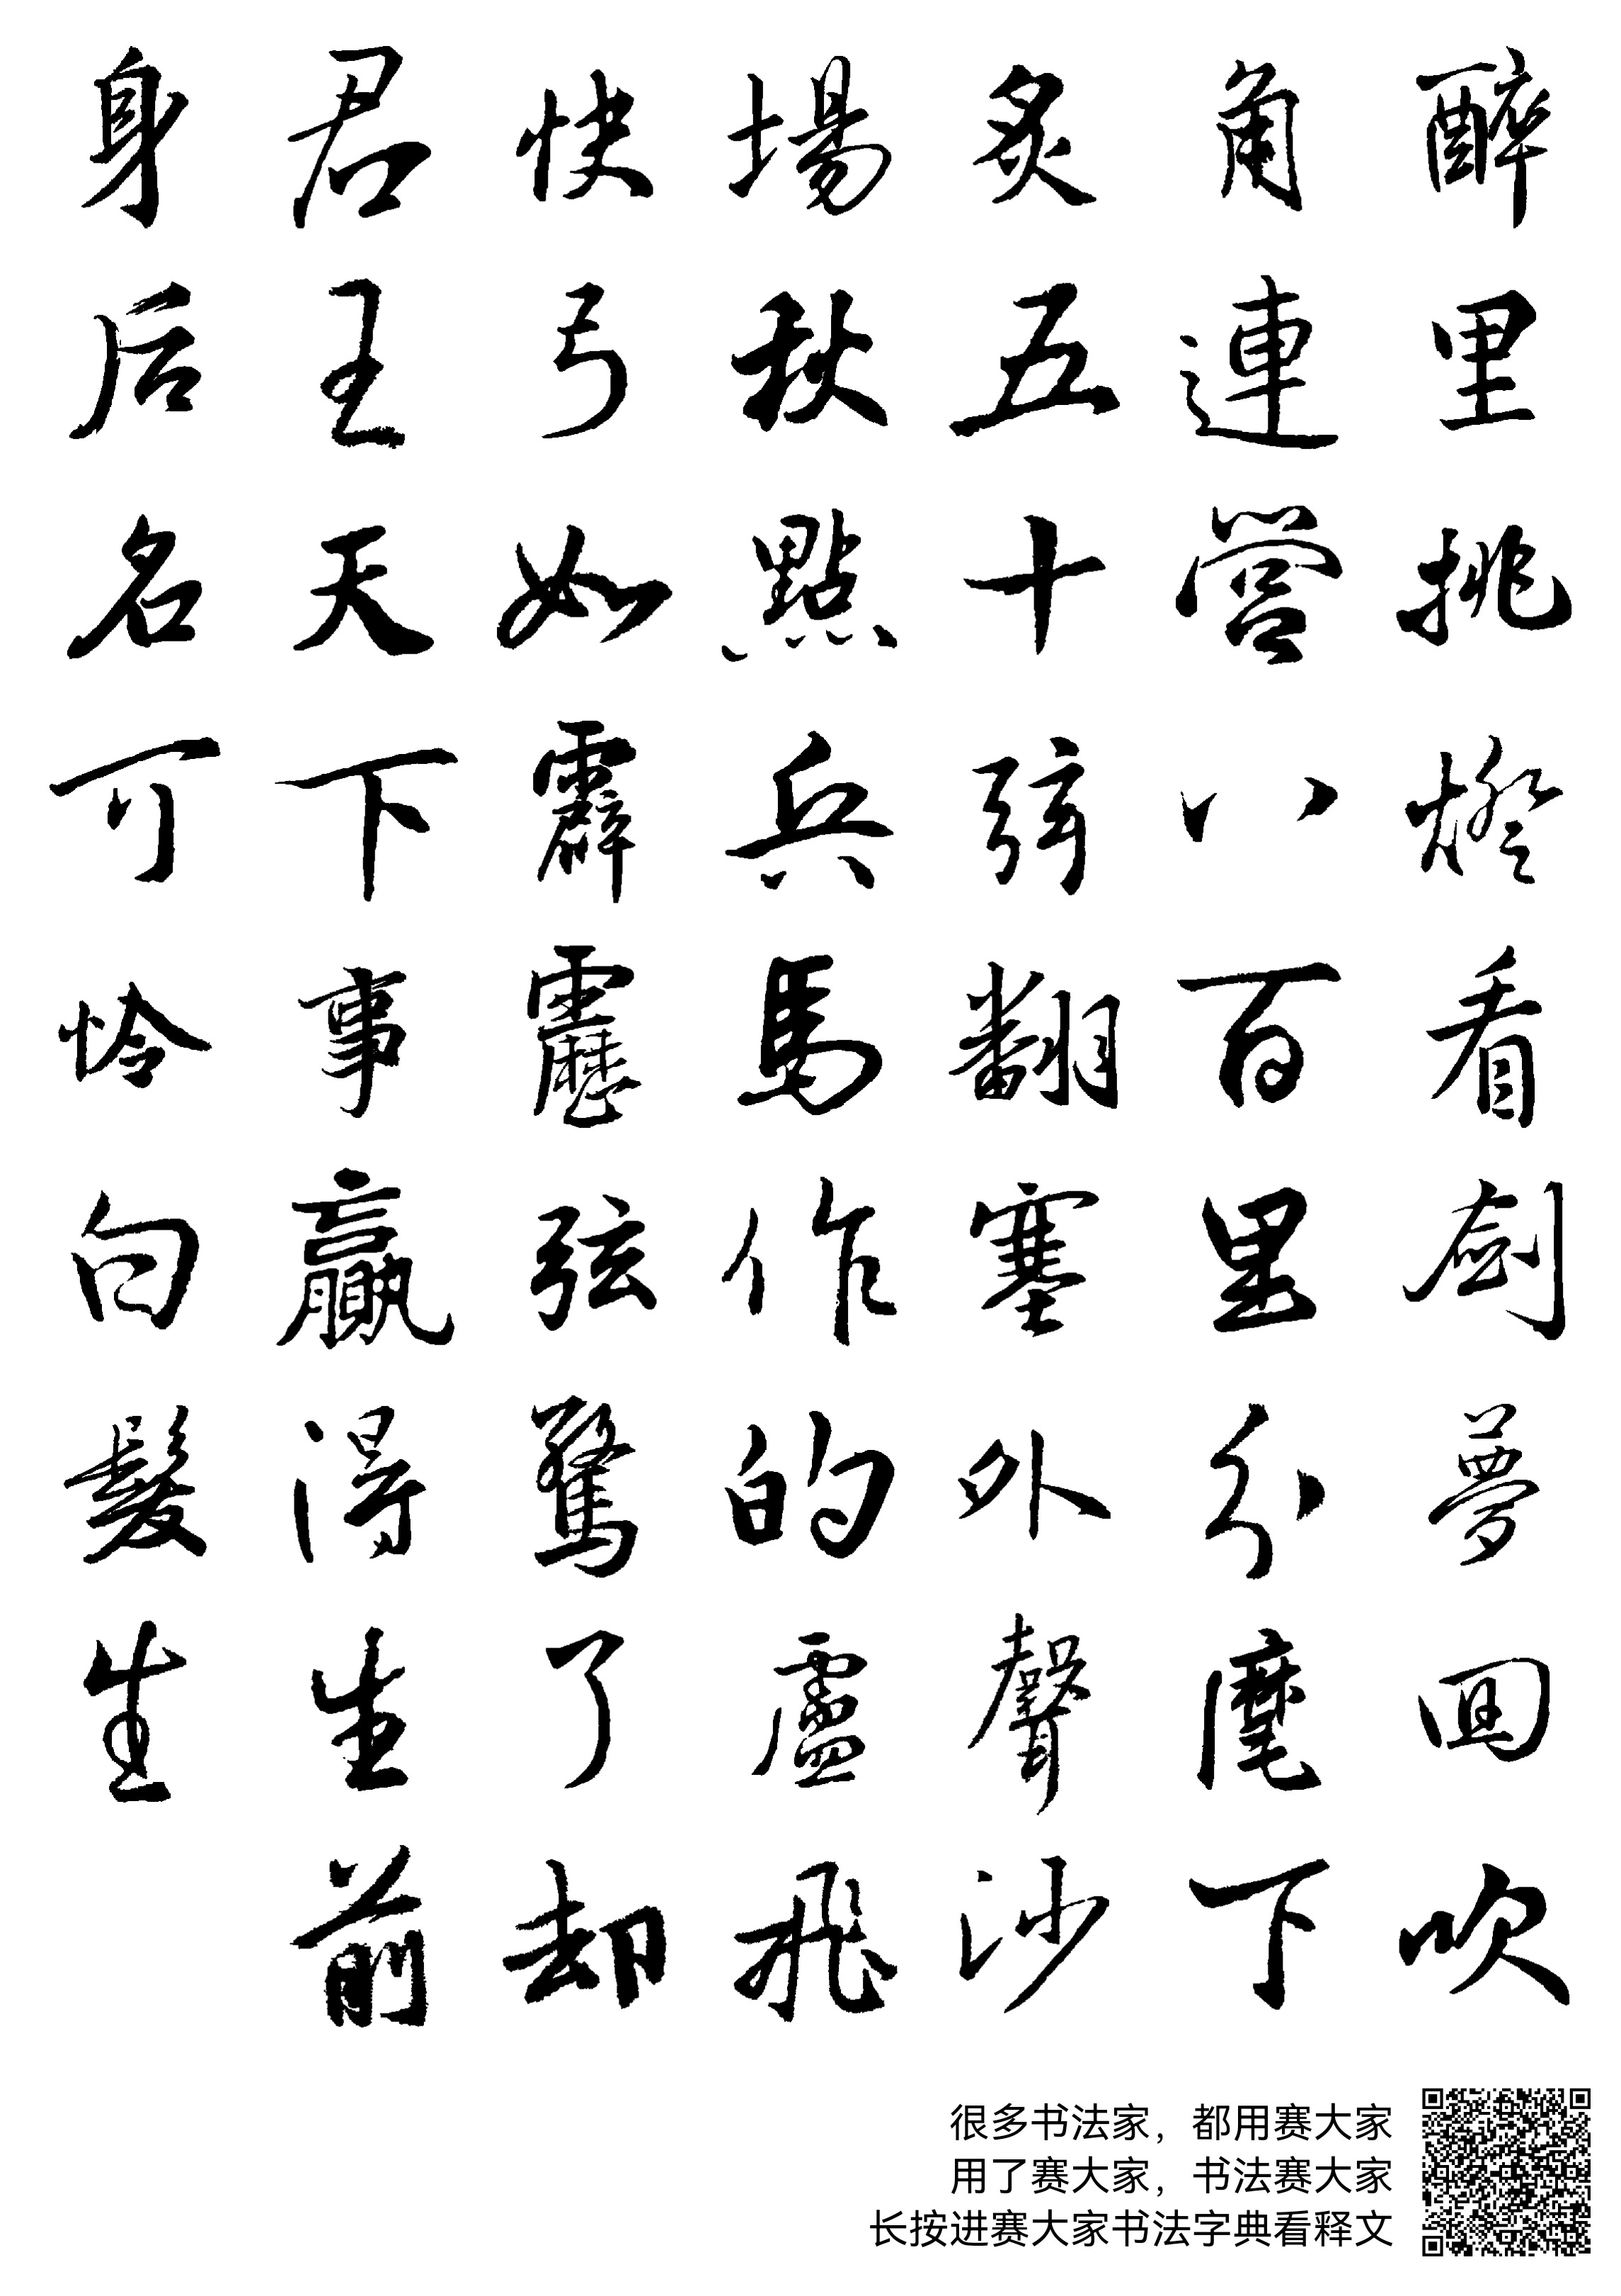 醉里挑燈看劍夢回吹
角連營八百里分麾下
炙五十弦翻塞外聲沙
場秋點兵馬作的盧飛
快弓如霹靂弦驚了却
君王天下事贏得生前
身后名可怜白髮生
很多书法家，都用赛大家
用了赛大家，书法赛大家
长按进赛大家书法字典看释文